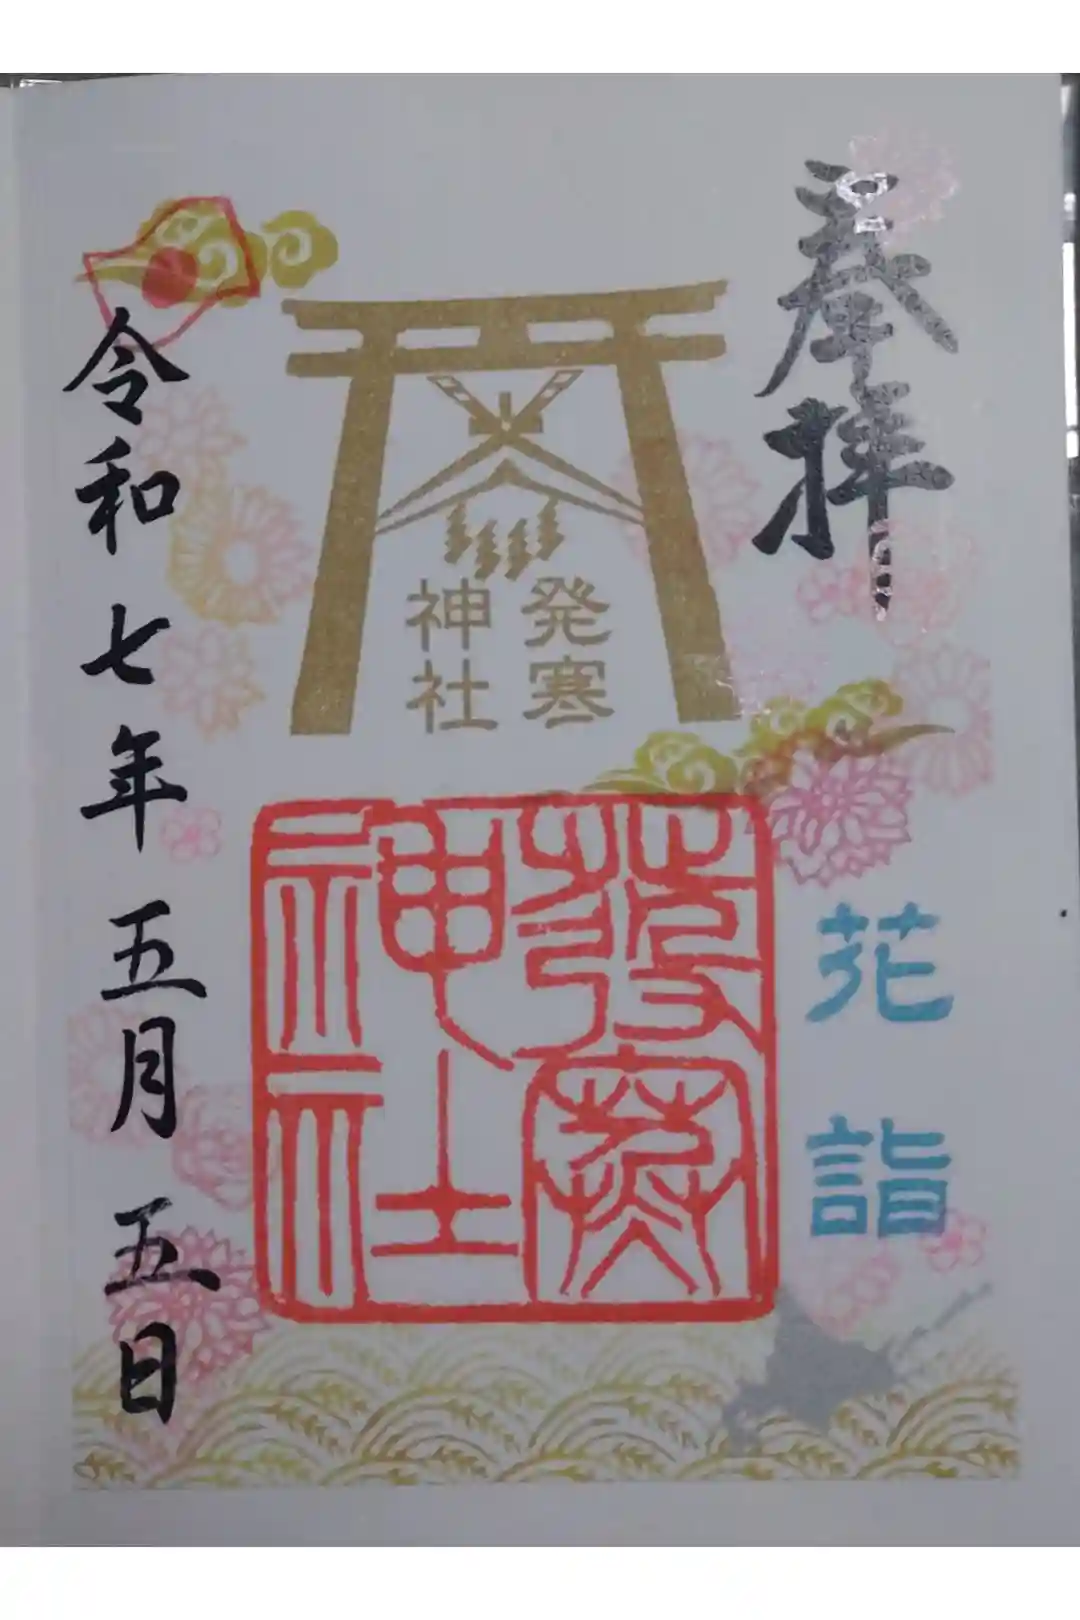 奉拝
発寒
神社
發寒
神社
花詣
令和七年五月五日